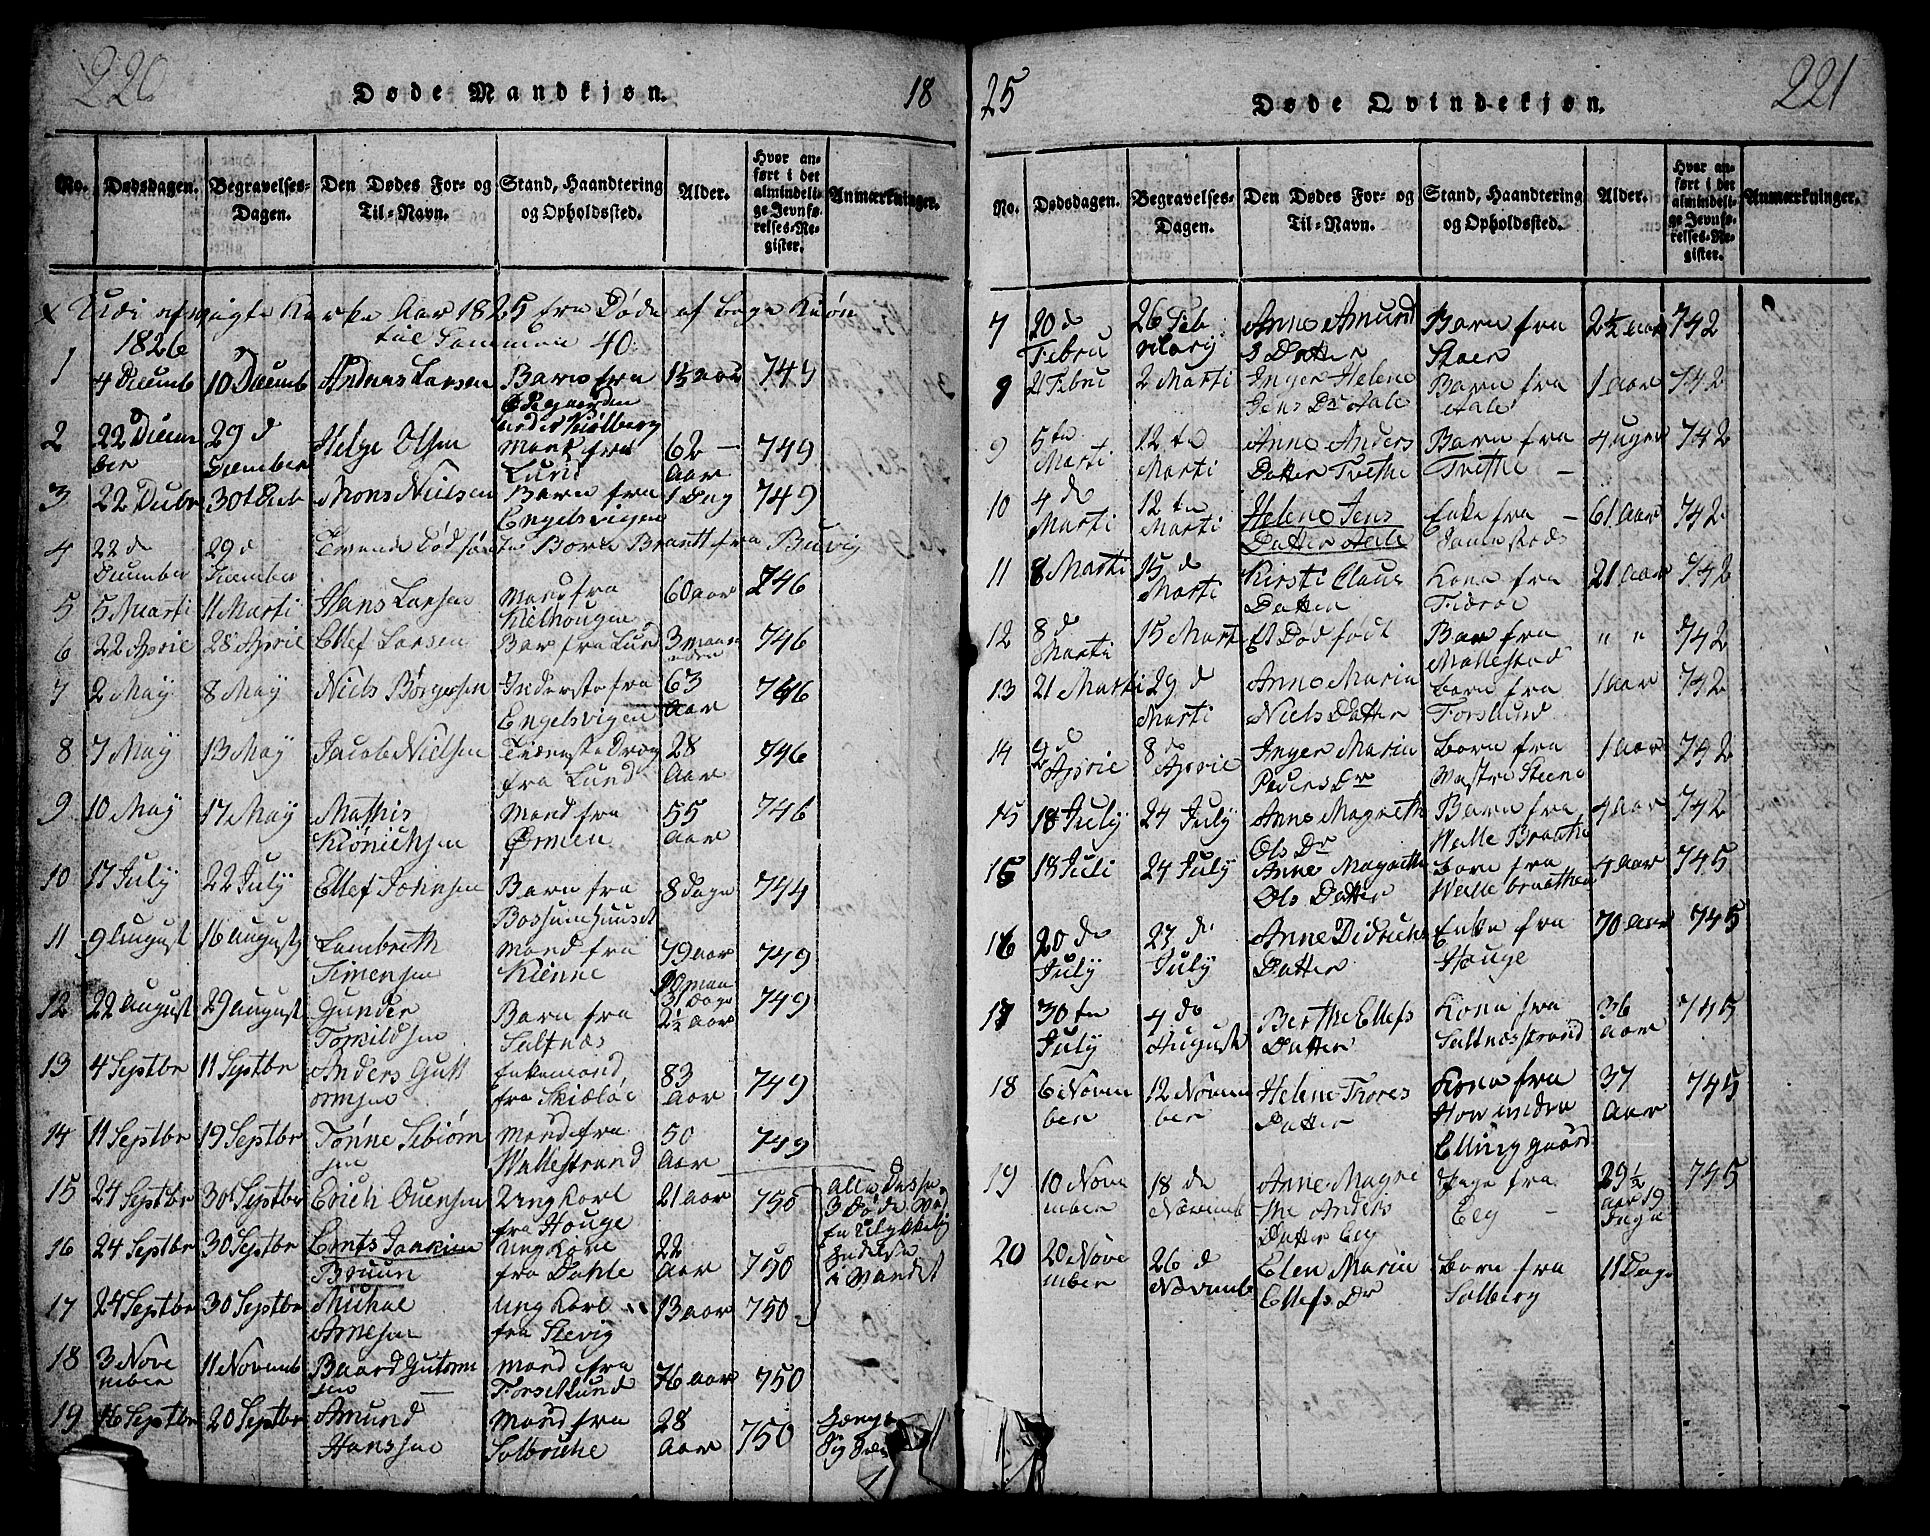 220
Døde Mandkjøn.
18
No.
Dødsdagen.
Begravelses-
Dagen.
Den Dødes For- og
Til-Navn.
Stand, Haandtering
og Opholdssted.
Alder.
Hvor an-
ført i det
almindeli-
ge Jevnfø-
relses-Re-
gister.
Anmærkninger.
Aar 1825 fra Døde af
40
1826
1
4 Decemb
10 Decemb
Andreas Larsen
Barn fra
1½ aar
749
2
22 Decem
ber
29 d
December
Helge Olsen
Mand fra
Lund
62
Aar
749
3
22 Decbr
30t Decb
Mons Nielsen
Barn fra
Engelsvigen
1 Dag
749
4
22 d
December
29 d
December
fra Buvig
5
5 Marti
11 Marti
Hans Larsen
Mand fra
Kielhougen
60 aar
746
6
22 Aprie
28 Aprie
Ellef Larsen
Bar fra Lund
3 maan
746
7
2 May
8 May
Niels Børgersen
Inderste fra
Engelsvigen
63
Aar
746
8
7 May
13 May
Jacob Nielsen
Tieneste Dræg
fra Lund
28
Aar
746
9
10 May
17 May
Mathis
Mand fra
Ørmen
55
Aar
746
10
17 July
22 July
Ellef Johnsen
Barn fra
8 Dage
744
11
9 August
16 august
Lambreth
Simensen
Mand fra
Kienne
79 aar
749
12
22 august
29 august
Gunder
Tomildsen
Barn fra
Saltnæs
2½ aar
749
13
4 Septbr
11 Septbr
Anders Gutt
ormsen
Enkemand
fra Skiæløe
83
Aar
749
14
11 Septbr
19 Septbr
Tønne Sebiørn
sen
Mand fra
Wallestrand
50
Aar
749
15
24 Septbr
30t Septbr
Erich Ouensen
Ung Karl
fra Houge
21 aar
750
Alle Desse
3 Døde Ved
En Ulykkelig
Hendelse
i Vandet
16
24 Septbr
30 Septbr
Bruun
Ung Karl
fra Dahle
22
Aar
750
17
24 Septbr
30 Septbr
Michal
Arnesen
Ung Karl
fra Slevig
13 aar
750
18
3 Nove
mber
11 Novemb
Baard Gutorm
sen
Mand fra
Forseklund
76 aar
750
19
16 Septbr
20 Septbr
Amund
Hanssen
Mand fra
28
Aar
750
Hængt
sig
25
Døde Qvindekjøn.
221
No.
Dødsdagen.
Begravelses-
Dagen.
Den Dødes For- og
Til-Navn.
Stand, Haandtering
og Opholdssted.
Alder.
Hvor an-
ført i det
almindeli-
ge Jevnfø-
relses-Re-
gister.
Anmærkninger.
7
20 d
Febru
26 Feb
ruary
Anne Amund
s Datter
Barn fra
2½ aar
742
9
21 Febru
2 Marti
Inger Helene
Jens Dr Aale
Barn fra
Aale
1 aar
742
9
5te
Marti
12 te
Marti
Anne Anders
Datter Tvethe
Barn fra
Tvethe
4 uger
742
10
4 de
Marti
12 te
Marti
Helene Jens
Datter
Enke fra
61 aar
742
11
8 Marti
15 d
Marti
Kirsti Claus
Datter
Kona fra
21 aar
742
12
8 d
Marti
15 Marti
Et Død født
Bar fra
Mallestad
" "
742
13
21 Marti
29 d
Marti
Anne Maria
Niels Datter
Barn fra
Forslund
1 aar
742
14
2 d
Aprie
8 d
Aprie
Inger Maria
Peders Dr
Barn fra
Wastre Steene
1 aar
742
15
18 July
24 July
Anne Magreth
Ols Dr
Barn fra
Welle Braathe
4 aar
742
15
18 Juli
24 July
Anne Magrethe
Ols Datter
Barn fra
Welle braathen
4 aar
745
16
20 de
July
23 de
July
Anne Didrichs
Datter
Enke fra
Houge
70 aar
745
17
30 te
July
4 de
August
Berthe Ellefs
Datter
Kona fra
Saltnæsstrand
36
aar
745
18
6 Novem
ber
12 Novem
ber
Helene Thores
Datter
Kona fra
Hov under
Elling gaard
37
Aar
745
19
10 Nove
mber
18 de
Novemb
Anne Magre
the Anders
Datter Eeg
Pige fra
Eeg
29½
745
20
20 Nove
mber
26 d
Novemb
Elen Maria
Ellefs Dr
Barn fra
Solberg
11 Dage